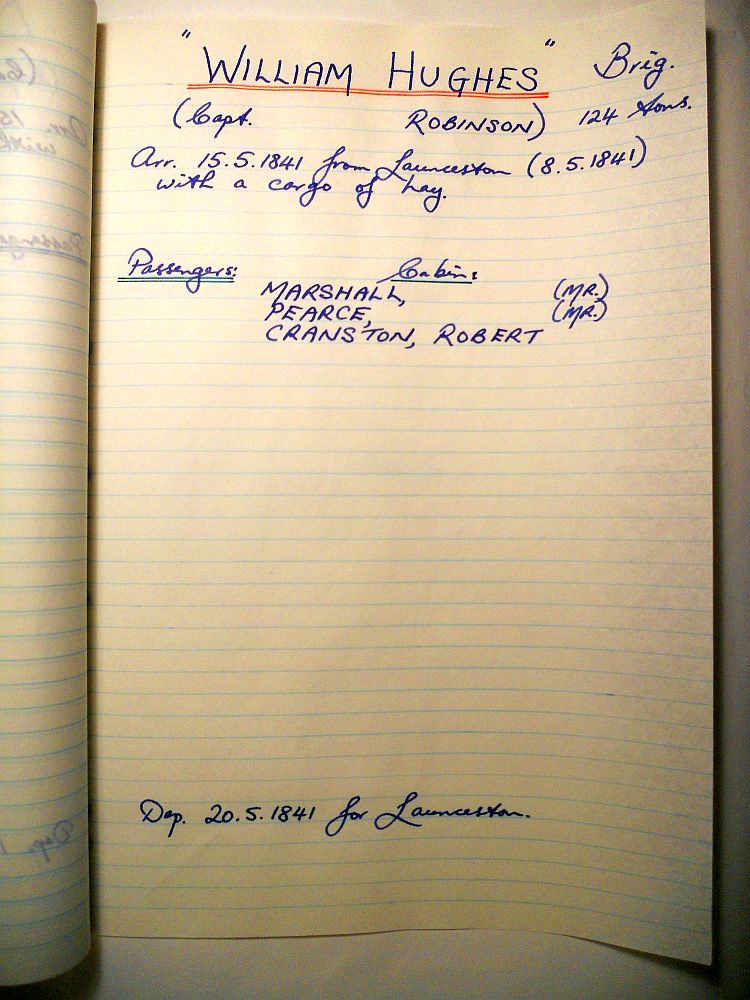 "WILLIAM HUGHES" Brig.
(Capt. ROBINSON) 124 tons.
Arr. 15.5.1841 from Launceston (8.5.1841)
with a cargo of hay.
Passengers: Cabin:
MARSHALL, (MR.)
PEARCE, (MR.)
CRANSTON, ROBERT
Dep. 20.5.1841 for Launceston.